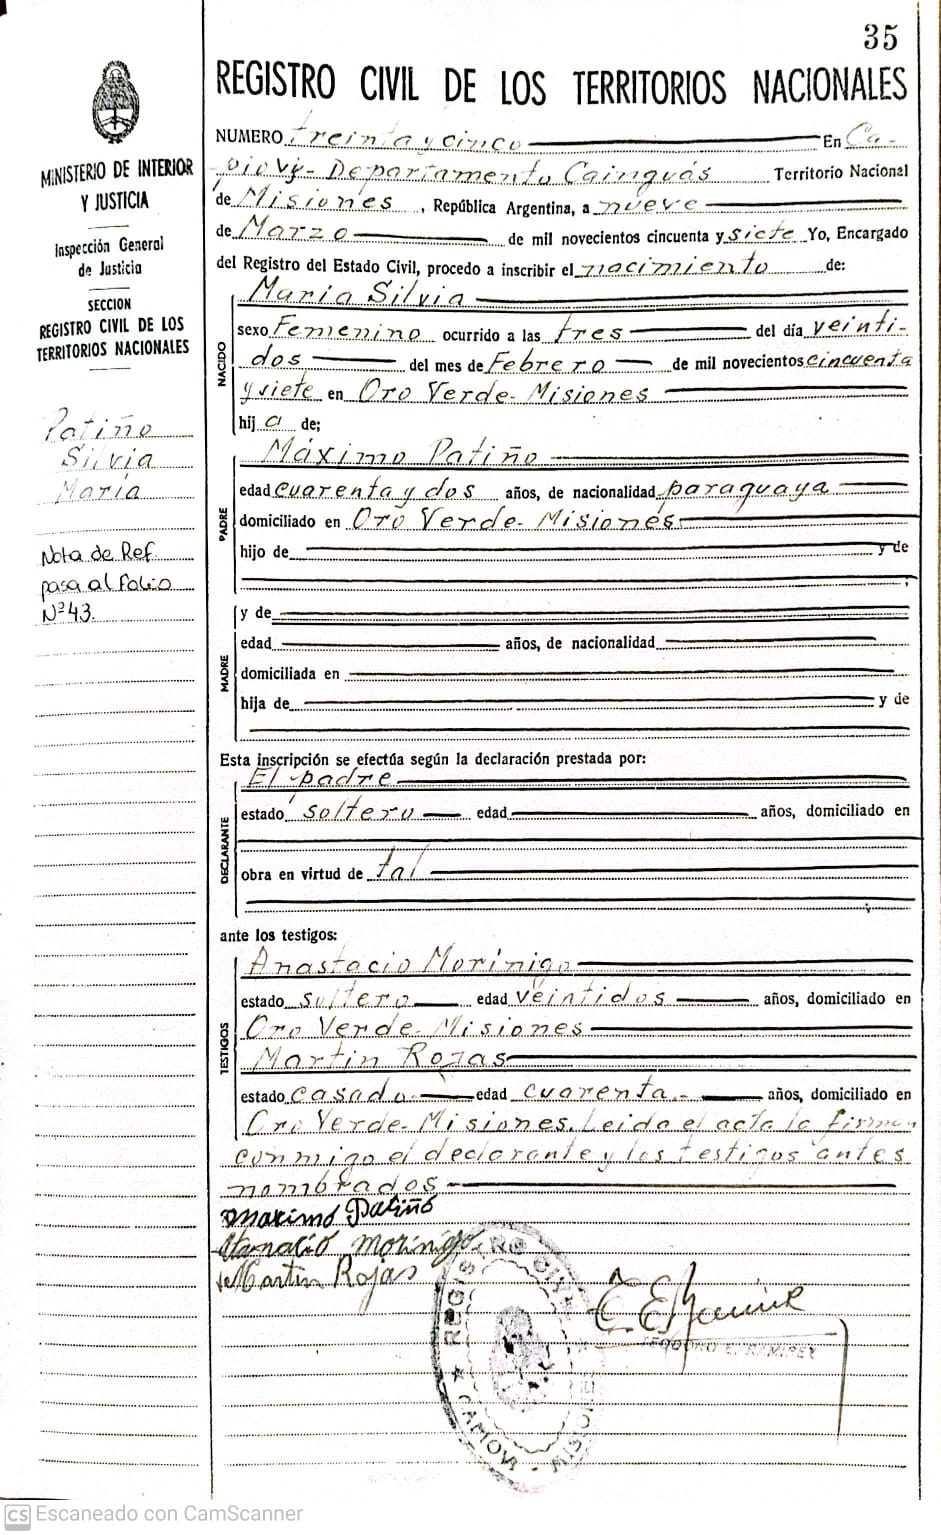 35
REGISTRO CIVIL DE LOS TERRITORIOS NACIONALES
MINISTERIO DE INTERIOR
Y JUSTICIA
Inspección General
de Justicia
SECCION
REGISTRO CIVIL DE LOS
TERRITORIOS NACIONALES
Patiño
Silvia
María
Nota de Ref.
pasa al Folio
Nº 43.
NUMERO treinta y cinco En Ca-
pioVy- Departamento Cainguás Territorio Nacional
de Misiones, República Argentina, a nueve
de Marzo de mil novecientos cincuenta y siete Yo, Encargado
del Registro del Estado Civil, procedo a inscribir el nacimiento de:
NACIDO
Maria Silvia
sexo Femenino ocurrido a las tres del día veinti-
dos del mes de Febrero de mil novecientos cincuenta
y siete en Oro Verde- Misiones
hij a de;
PADRE
Máximo Patiño
edad cuarenta y dos años, de nacionalidad paraguaya
domiciliado en Oro Verde- Misiones
hijo de y de
MADRE
y de
edad años, de nacionalidad
domiciliada en
hija de y de
Esta inscripción se efectúa según la declaración prestada por:
DECLARANTE
El padre
estado soltero edad años, domiciliado en
obra en virtud de tal
ante los testigos:
TESTIGOS
Anastacio Morínigo
estado soltero edad veintidos años, domiciliado en
Oro Verde- Misiones
Martin Rojas
estado casado edad cuarenta.- años, domiciliado en
Oro Verde- Misiones. Leida el acta la firman
conmigo el declarante y los testigos antes
nombrados
Maximo Patiño
Morinigo
Martin Rojas
REGISTRO CIVIL
MISIONES
TEODORO E. RAMIREZ
CS Escaneado con CamScanner